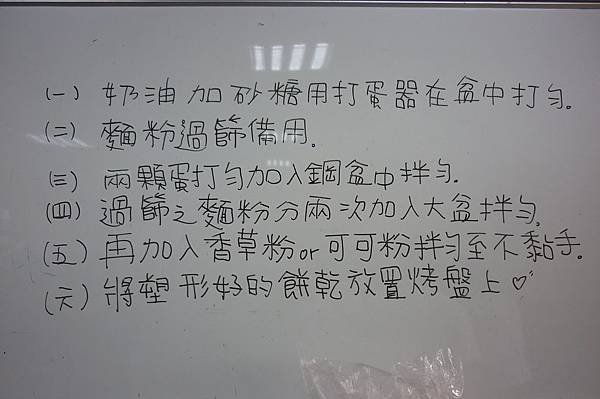 (一) 奶油加砂糖用打蛋器在盆中打勻.
(二) 麵粉過篩備用.
(三) 兩顆蛋打勻加入鋼盆中拌勻.
(四) 過篩之麵粉分兩次加入大盆拌勻.
(五) 再加入香草粉or可可粉拌勻至不黏手.
(六) 將塑形好的餅乾放置烤盤上♡